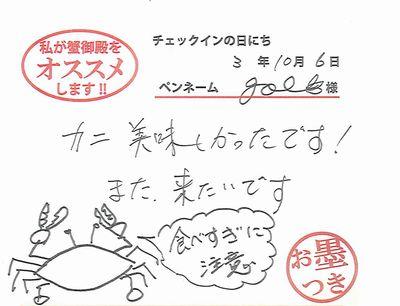 私が蟹御殿を
オススメ
します!!
チェックインの日にち
3年10月6日
ペンネーム 様
カニ美味しかったです!
また、来たいです
食べすぎに
注意
お墨
つき